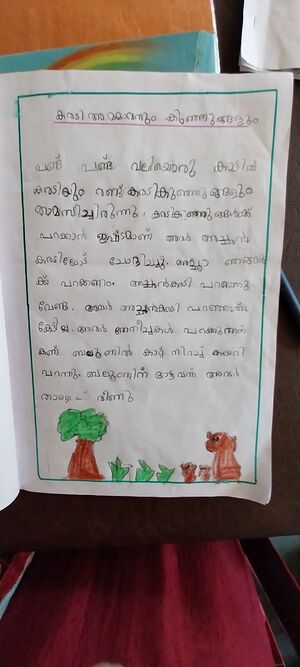 കരടി അമ്മാവനും കുഞ്ഞുങ്ങളും
പണ്ട് പണ്ട് വലിയൊരു കാട്ടിൽ
കരടിയും രണ്ട് കരടി കുഞ്ഞുങ്ങളും
താമസിച്ചിരുന്നു. കരടികുഞ്ഞുങ്ങൾക്ക്
പറക്കാൻ ഇഷ്ടമാണ് അവർ അച്ഛൻ
കരടിയോട് ചോദിച്ചു. അച്ഛാ ഞങ്ങൾ
ക്ക് പറക്കണം. അച്ഛൻകരടി പറഞ്ഞു
വേണ്ട. അവർ അച്ഛൻകരടി പറഞ്ഞത്
കേട്ടില്ല. അവർ തേനീച്ചകൾ പറക്കുന്നത്
കണ്ട് ബലൂണിൽ കാറ്റ് നിറച്ച് കയറി
പറന്നു. ബലൂണിന് ഓട്ട വന്ന് അവർ
താഴെ വീണു